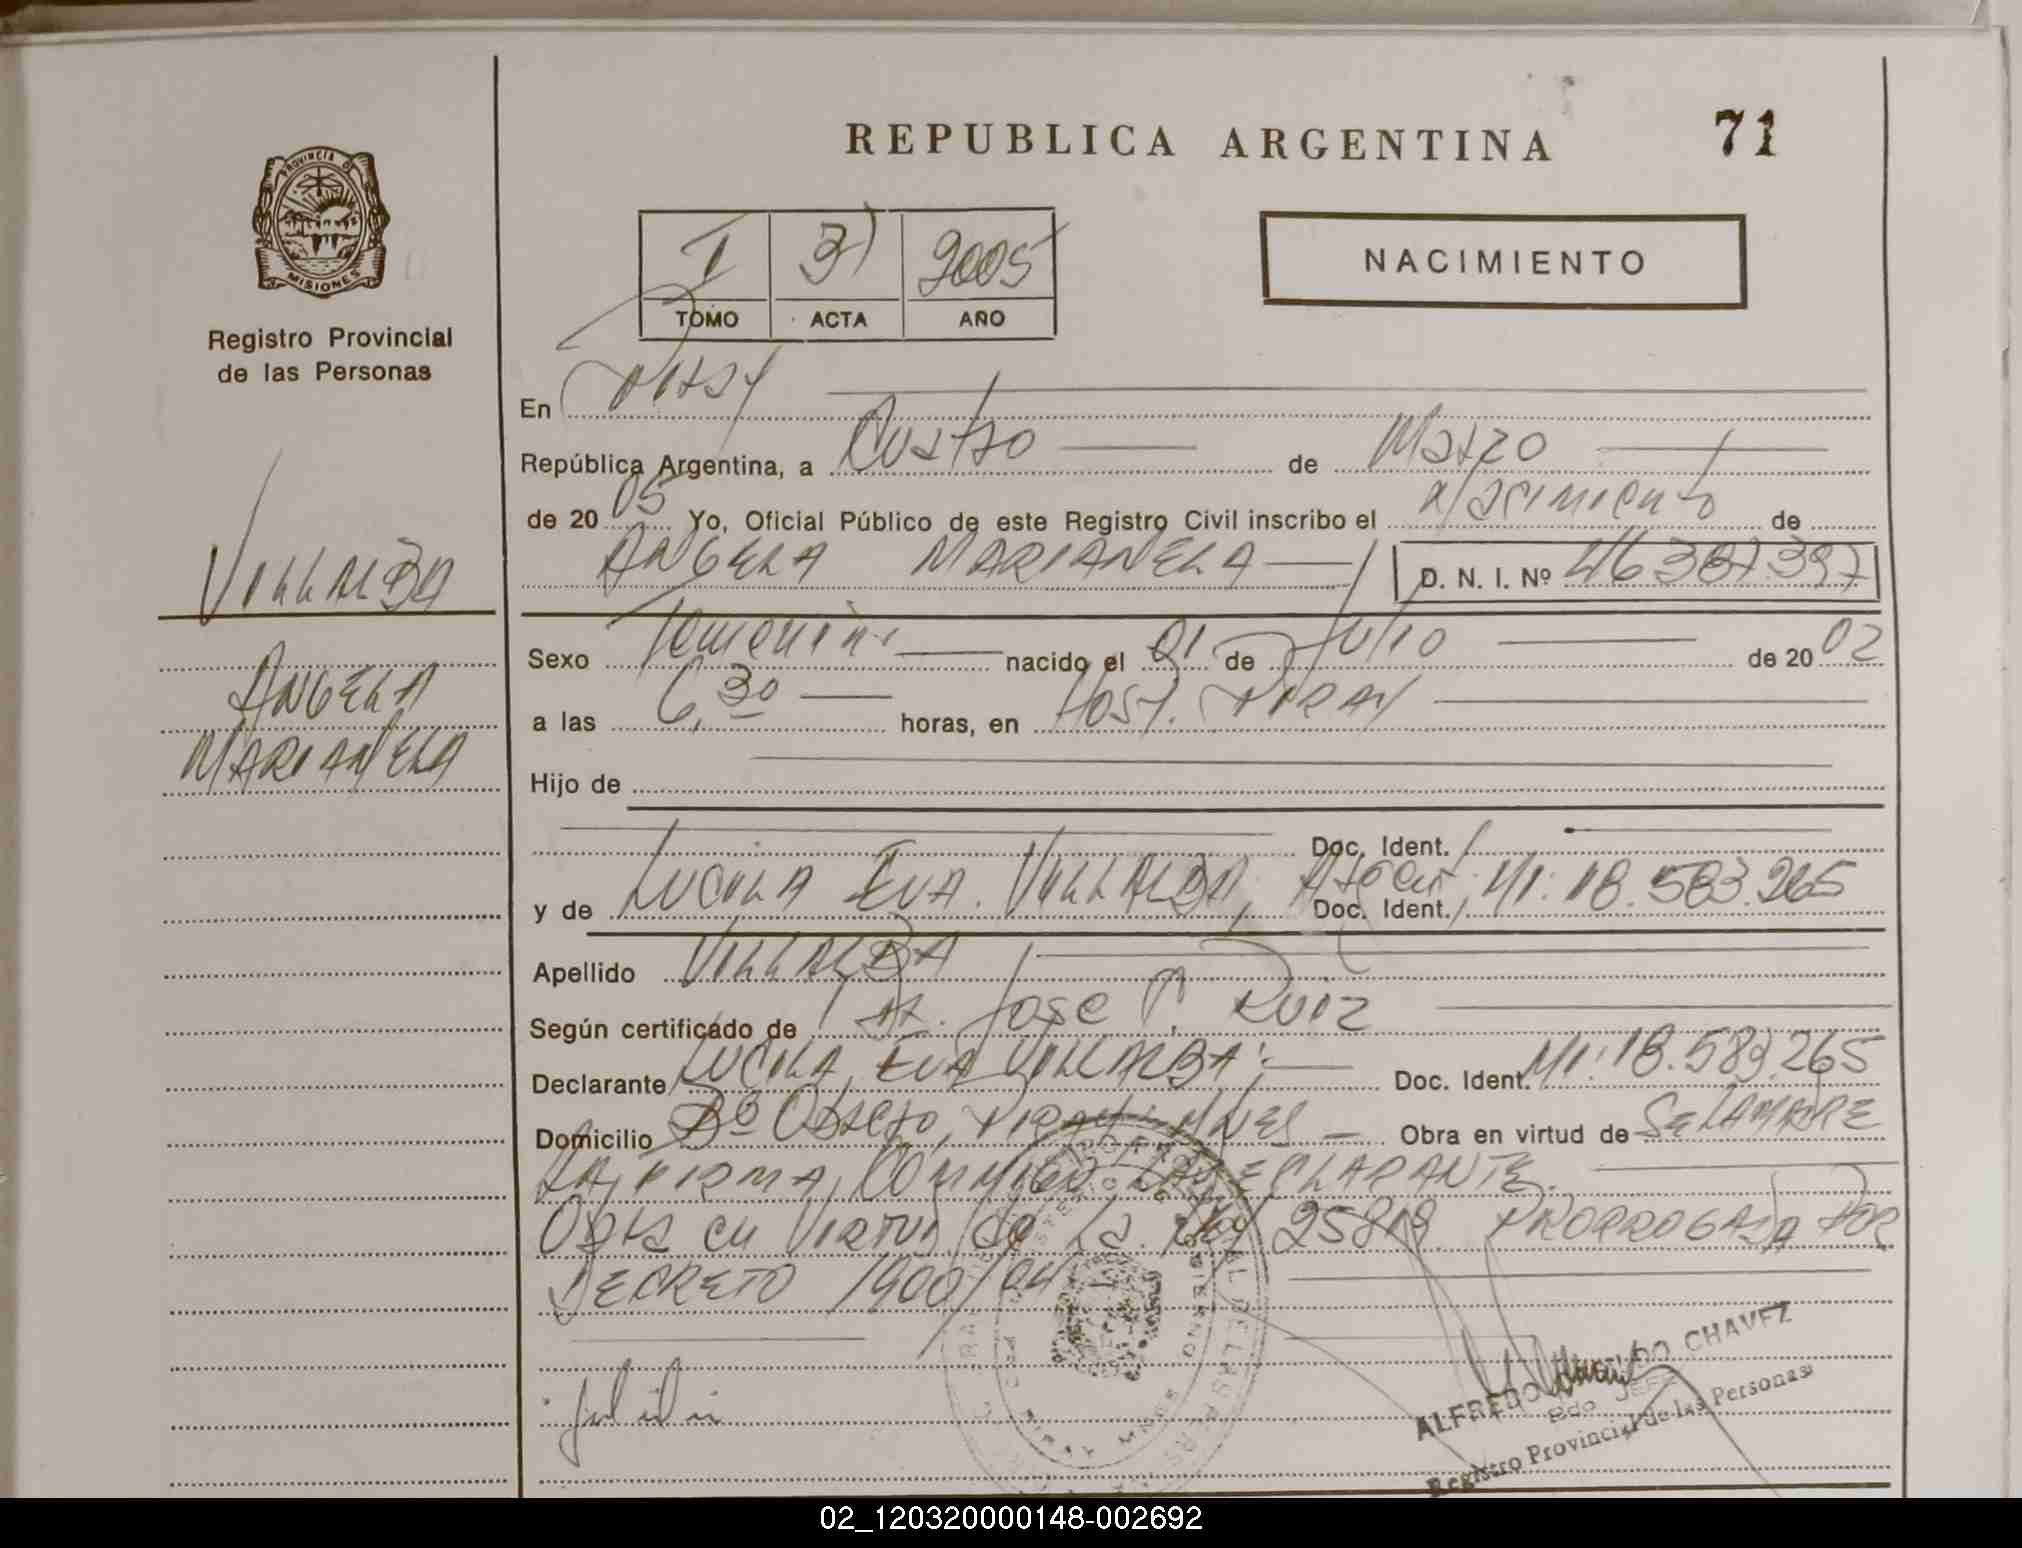 REPUBLICA ARGENTINA
71
PROVINCIA DE
MISIONES
Registro Provincial
de las Personas
I
2005
TOMO
ACTA
AÑO
NACIMIENTO
En
República Argentina, a Cuatro de Marzo
de 20 05 Yo, Oficial Público de este Registro Civil inscribo el Nacimiento de
ANGELA MARIANELA D. N. I. Nº
VILLALBA
ANGELA
MARIANELA
Sexo Femenino nacido el 01 de Julio de 20 02
a las 6,30 horas, en Hosp. PIRAY
Hijo de
Doc. Ident.
y de LUCILA EVA VILLALBA, Argent. Doc. Ident. MI: 18.583.265
Apellido VILLALBA
Según certificado de Jose Ruiz
Declarante LUCILA EVA VILLALBA Doc. Ident. MI: 18.583.265
Domicilio Bº Obrero, PIRAY MNES Obra en virtud de Se LAMADRE
LA, FIRMA, CONMIGO LA DECLARANTE.
Obra en Virtud de La Ley 25819 PRORROGADA POR
DECRETO 1900/04
ALFREDO CHAVEZ
JEFE
Registro Provincial de las Personas
02_120320000148-002692